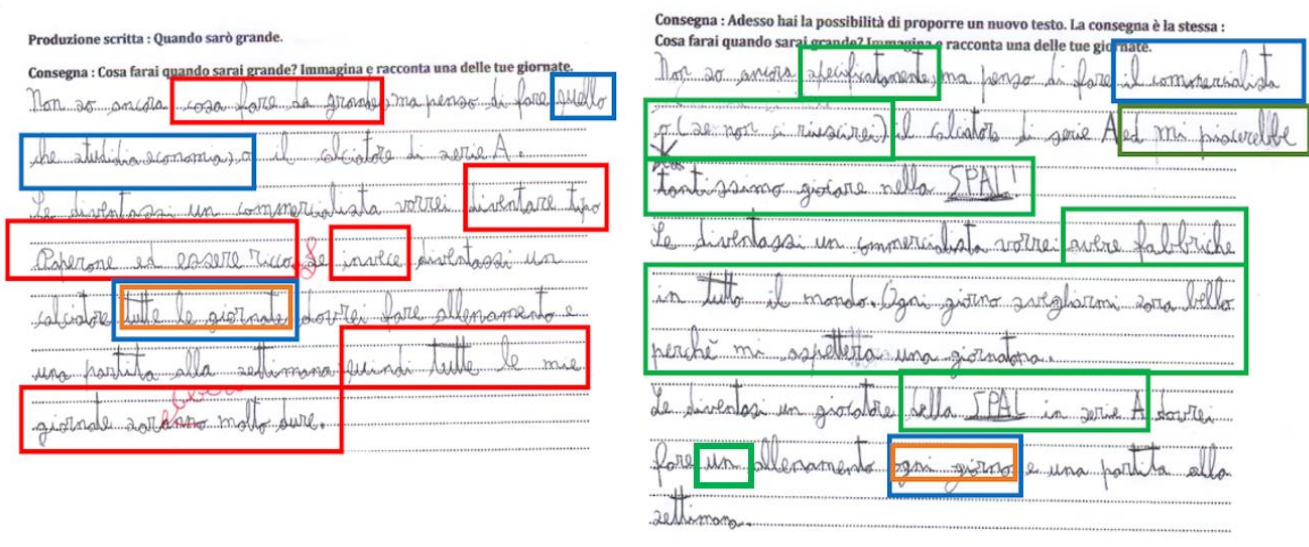 Produzione scritta : Quando sarò grande.
Consegna : Cosa farai quando sarai grande? Immagina e racconta una delle tue giornate.
Non so ancora cosa fare da grande, ma penso di fare quello
che studidia economia), o il calciatore di serie A.
Se diventassi un commercialista vorrei diventare tipo
Paperone ed essere ricco. Se invece diventassi un
calciatore tutte le giornate dovrei fare allenamento e
una partita alla settimana quindi tutte le mie
giornate molto dure.
Consegna : Adesso hai la possibilità di proporre un nuovo testo. La consegna è la stessa :
Cosa farai quando sarai grande? Immagina e racconta una delle tue giornate.
Non so ancora specificatamente, ma penso di fare il commercialista
o (se non ci riuscirei) il calciatore di serie A ed mi piacerebbe
tantissimo giocare nella SPAL!
Se diventassi un commercialista vorrei avere fabbriche
in tutto il mondo. Ogni giorno svegliarmi sara bello
perchè mi aspettera una giornatona.
Se diventassi un giocatore della SPAL in serie A dovrei
fare un allenamento ogni giorno e una partita alla
settimana.